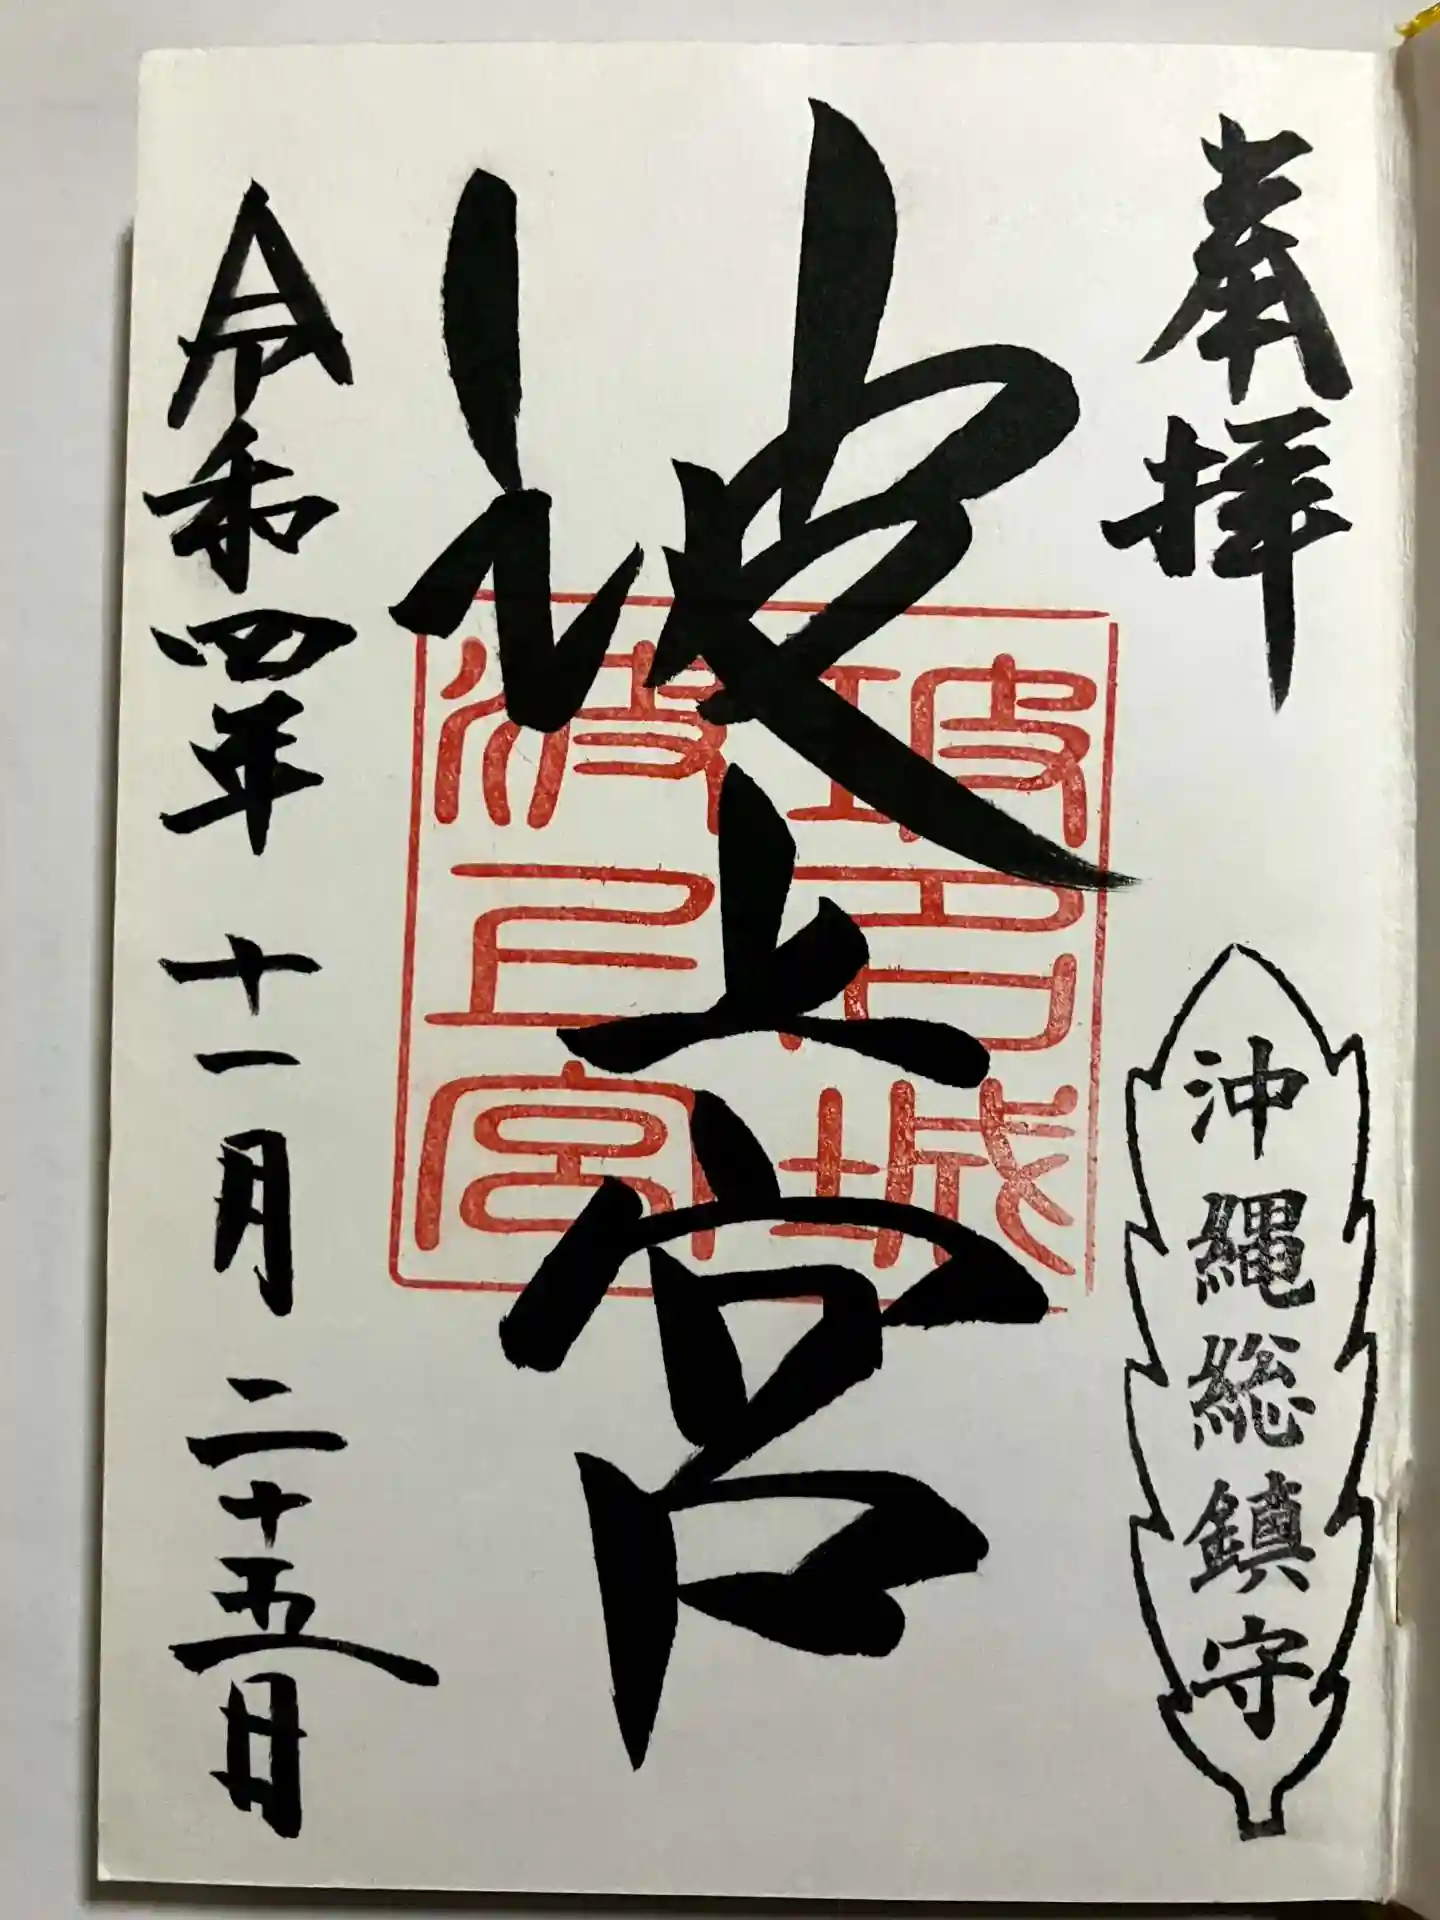 奉拝
沖縄総鎮守
波上宮
波上宮
令和四年 十一月 二十五日